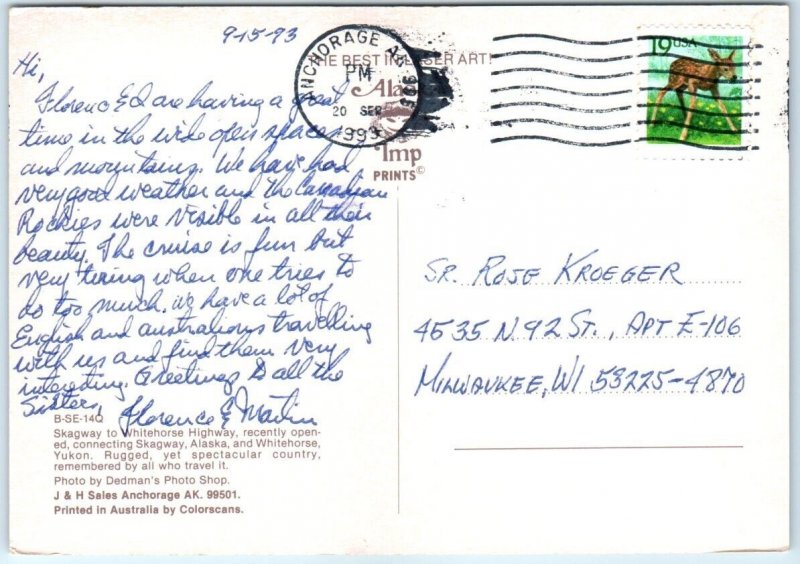 9-15-93
Hi,
Florence & I are having a great
time in the wide open spaces
and mountains. We have had
very good weather and the Canadian
Rockies were visible in all their
beauty. The cruise is fun but
very tiring when one tries to
do too much. We have a lot of
English and australians travelling
with us and find them very
interesting. Greetings to all the
Sisters,
Florence & Martin
B-SE-14Q
Skagway to Whitehorse Highway, recently open-
ed, connecting Skagway, Alaska, and Whitehorse,
Yukon. Rugged, yet spectacular country,
remembered by all who travel it.
Photo by Dedman's Photo Shop.
J & H Sales Anchorage AK. 99501.
Printed in Australia by Colorscans.
THE BEST IN LASER ART!
Imp
PRINTS©
ANCHORAGE AK
PM
20 SEP
1993
19 USA
SR. ROSE KROEGER
4535 N. 92 ST., APT E-106
MILWAUKEE, WI 53225-4870